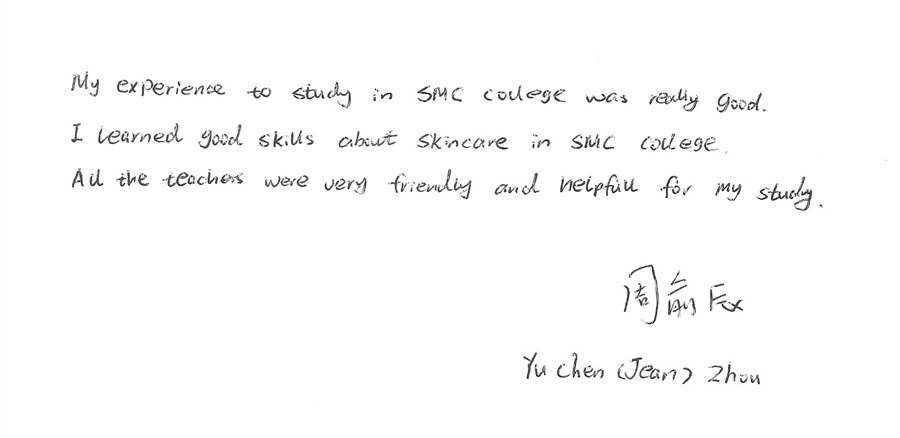 My experience to study in SMC college was really good.
I learned good skills about skincare in SMC college.
All the teachers were very friendly and helpfull for my study.
周俞辰
Yu chen (Jean) Zhou